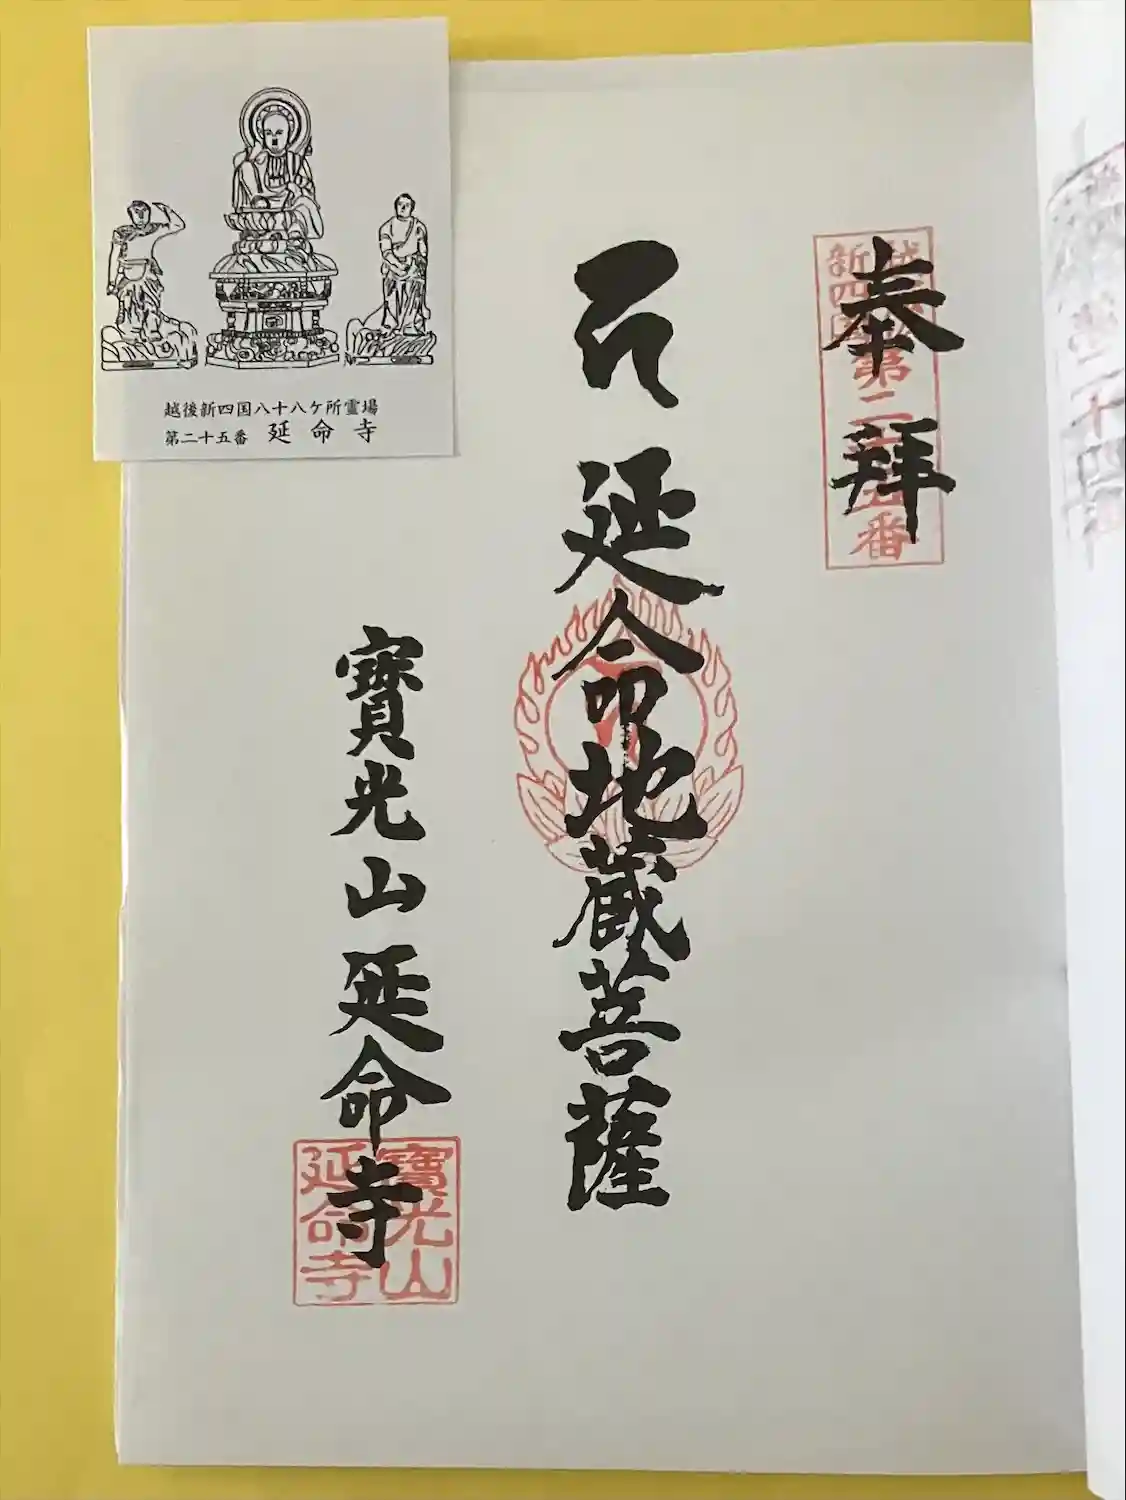 越後新四国八十八ケ所霊場
第二十五番 延命寺
奉拝
越後
新四国
第二十五番
延命地蔵菩薩
寳光山延命寺
寳光山
延命寺